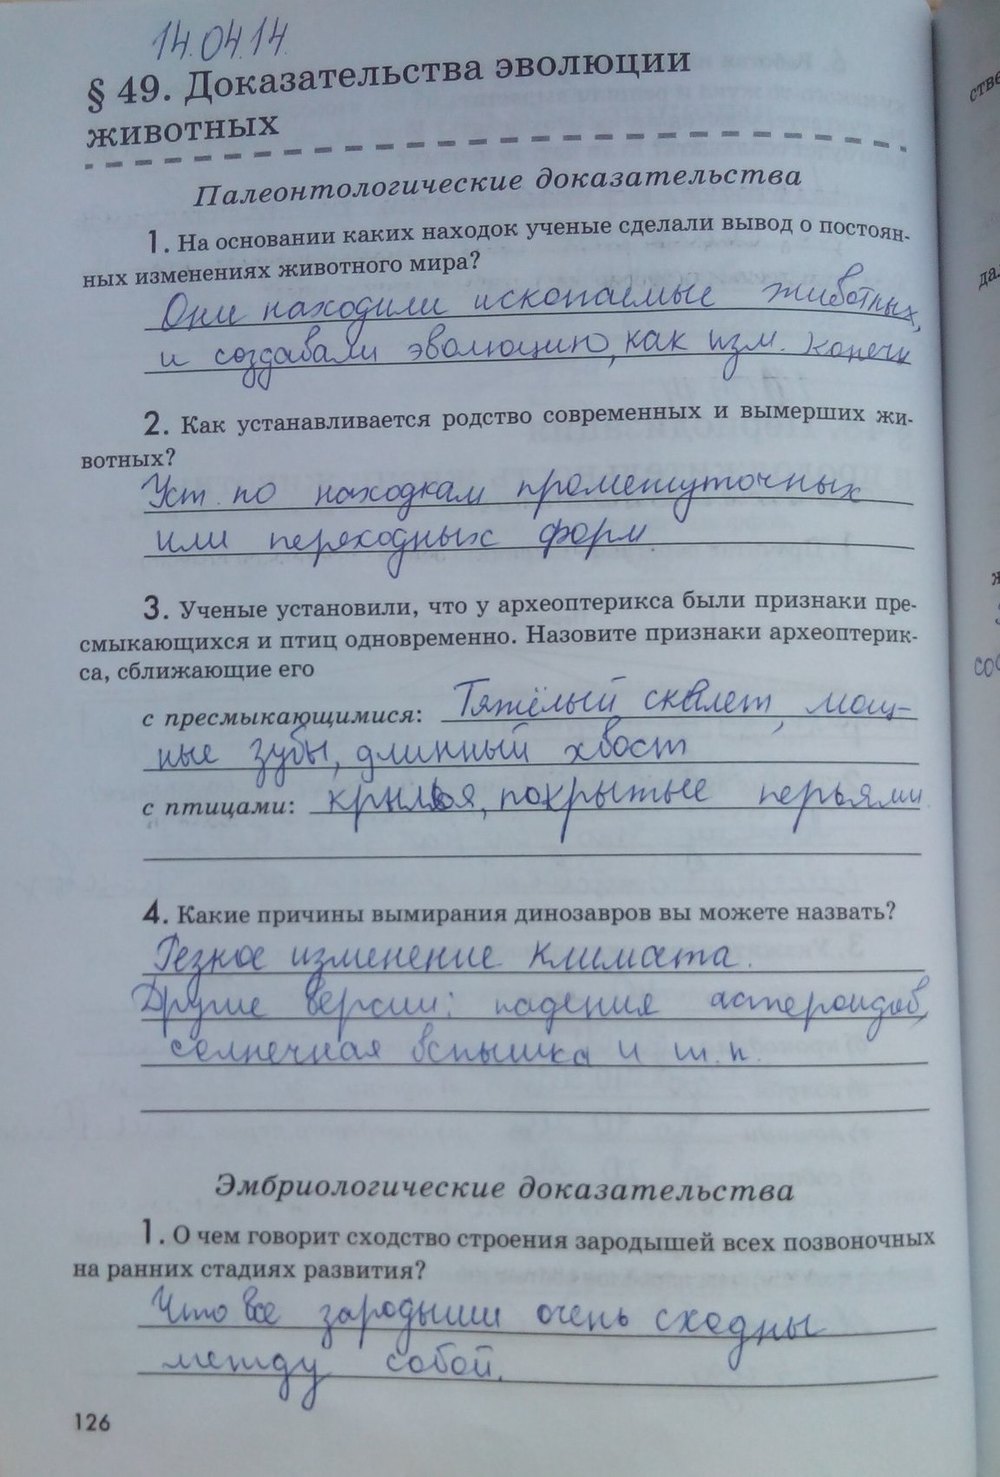 14.04.14
§ 49. Доказательства эволюции
животных
Палеонтологические доказательства
1. На основании каких находок ученые сделали вывод о постоян-
ных изменениях животного мира?
Они находили ископаемые животных,
и создавали эволюцию, как изм. конечн
2. Как устанавливается родство современных и вымерших жи-
вотных?
Уст. по находкам промежуточных
или переходных форм
3. Ученые установили, что у археоптерикса были признаки пре-
смыкающихся и птиц одновременно. Назовите признаки археоптерик-
са, сближающие его
с пресмыкающимися: Тяжёлый скелет, мощ-
ные зубы, длинный хвост
с птицами: крылья, покрытые перьями
4. Какие причины вымирания динозавров вы можете назвать?
Резкое изменение климата.
Другие версии: падения астероидов,
солнечная вспышка и т.п.
Эмбриологические доказательства
1. О чем говорит сходство строения зародышей всех позвоночных
на ранних стадиях развития?
Что все зародыши очень сходны
между собой.
126